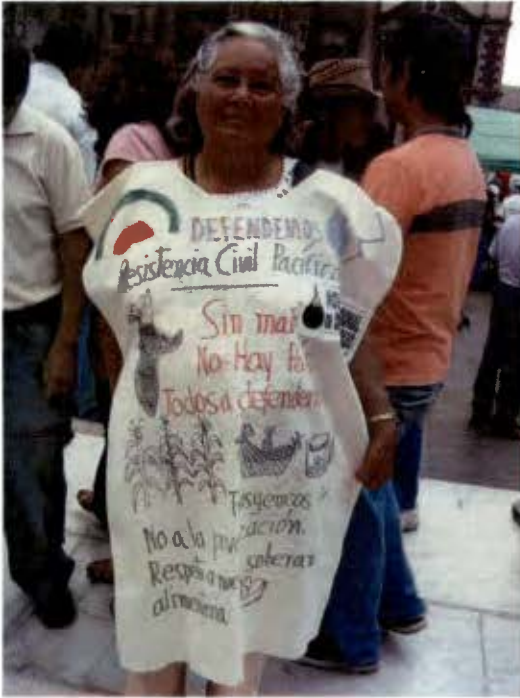 DEFENDEMOS
Resistencia Civil Pacífica
Sin maí
No Hay Pa
Todos a defender
No a la pri
zación.
Respeto a nues
soberan
alimentaria